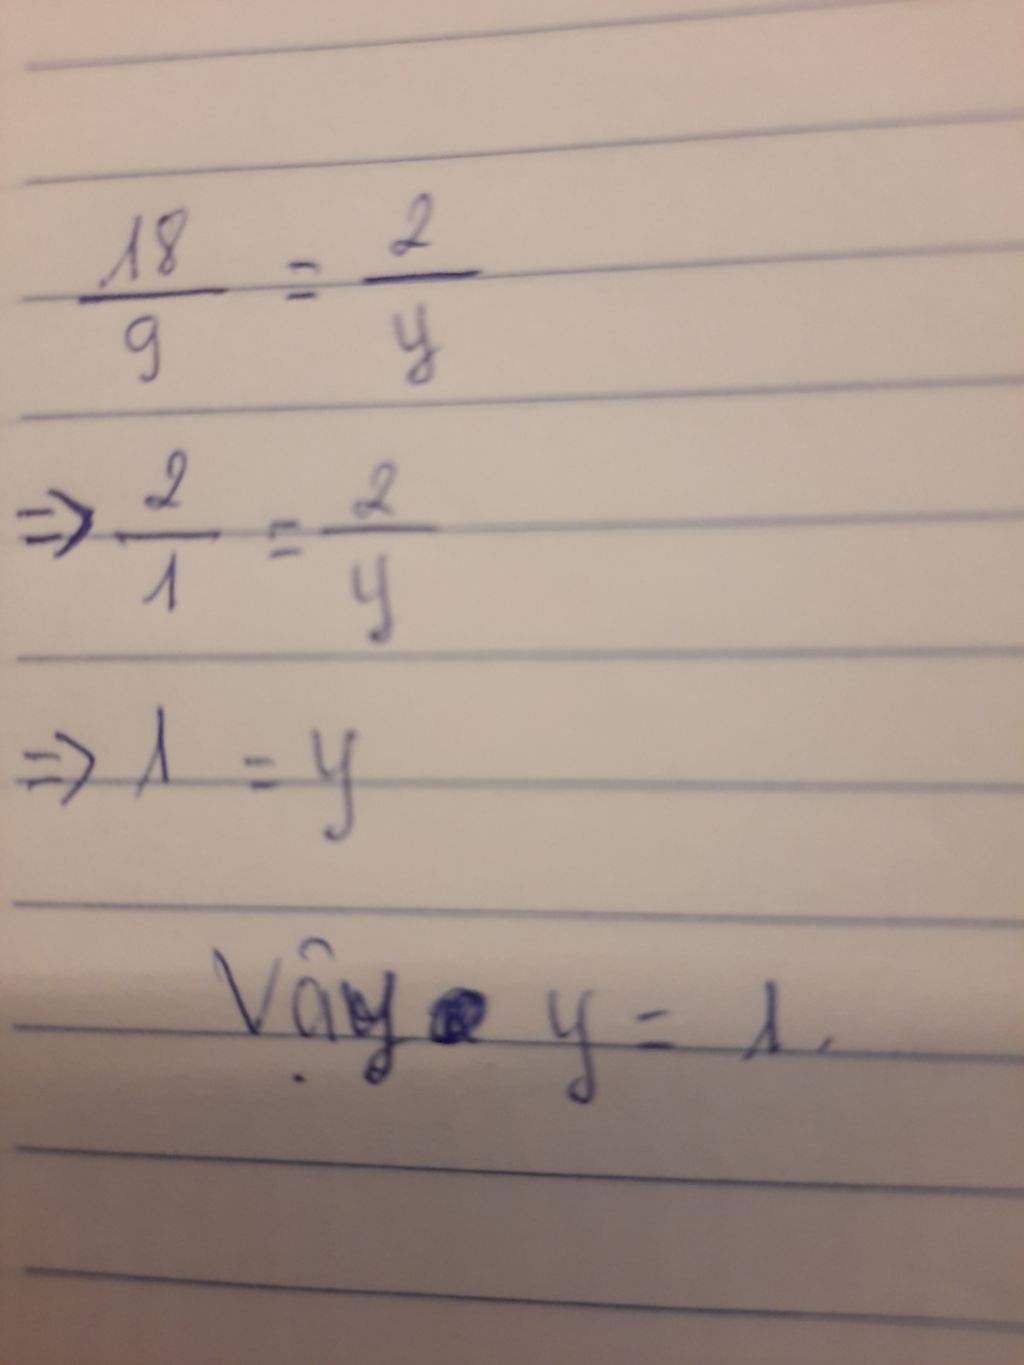 18/9 = 2/y
⇒ 2/1 = 2/y
⇒ 1 = y
Vậy y = 1.